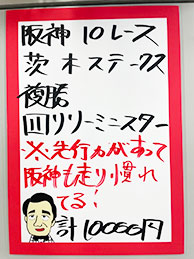 阪神 10レース
茨木ステークス
複勝
リリーミニスター
※先行力があって
阪神も走り慣れ
てる!
計10000円